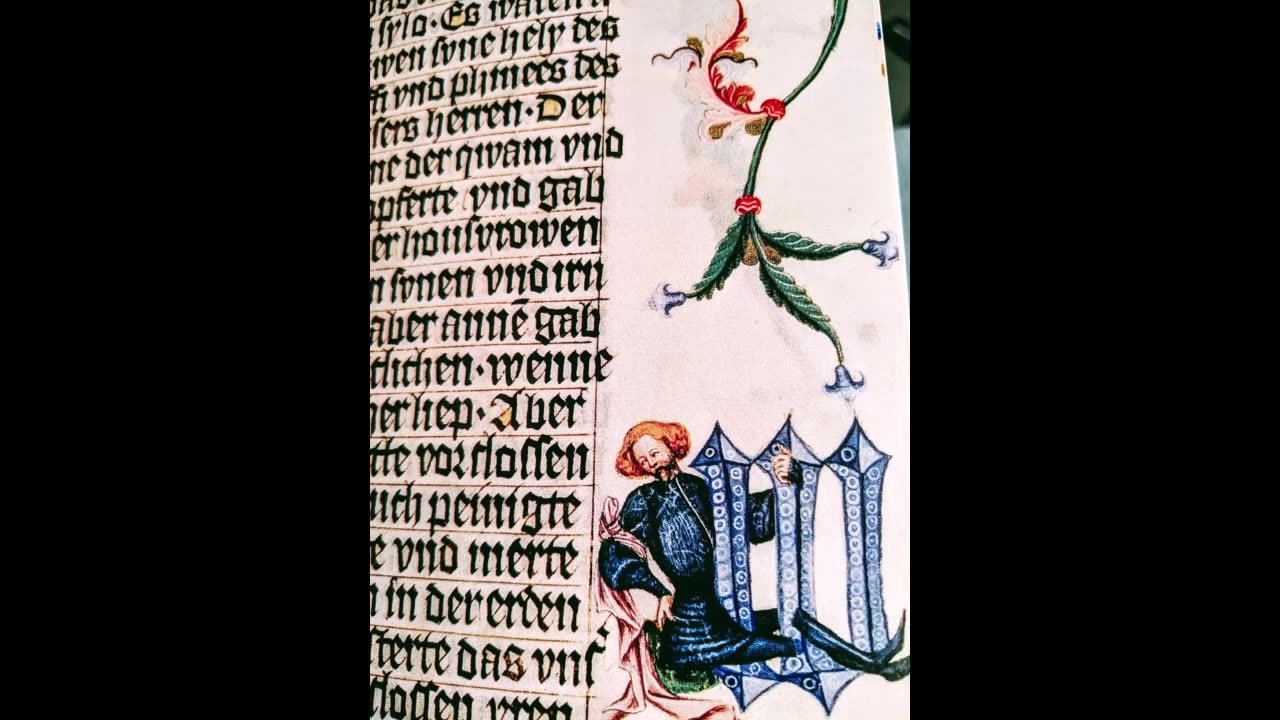 sylo · Es waren
wen svne hely des
vnd phinees des
sers herren · Der
ne der qwam vnd
opferte vnd gab
er housvrowen
n svnen vnd irn
aber annē gab
tlichen · wenne
er liep · Aber
tte vorslossen
uch peinigte
e vnd merte
n in der erden
sterte das vns
slossen vren